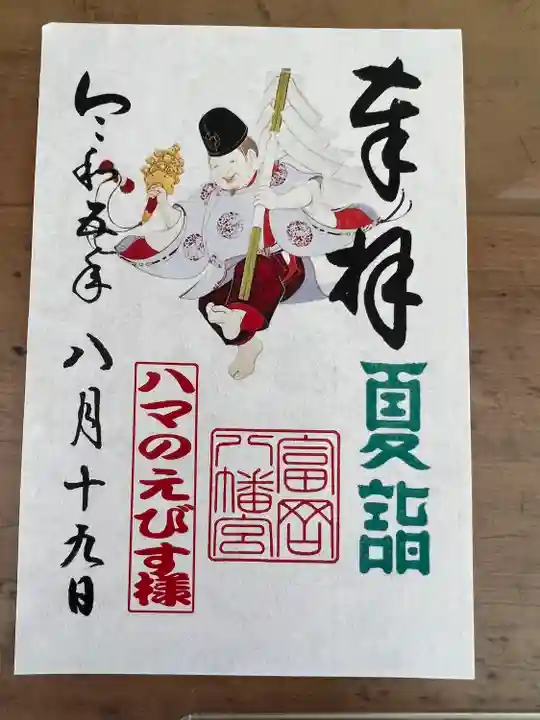 奉拝
夏詣
富岡
八幡宮
ハマのえびす様
令和五年八月十九日